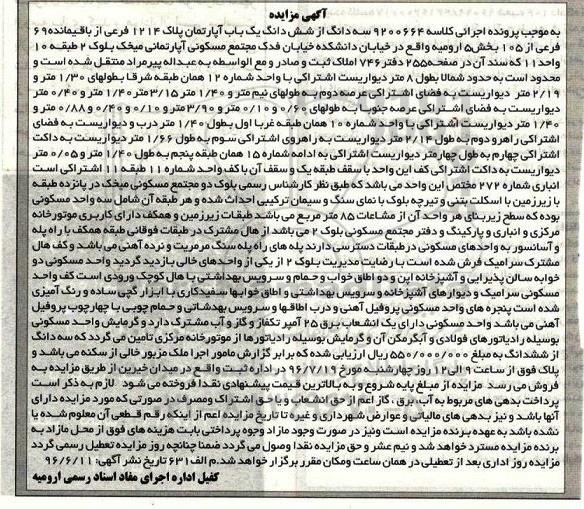 آگهی مزایده
به موجب پرونده اجرائی کلاسه ۹۲۰۰۶۶۴ سه دانگ از شش دانگ یک باب آپارتمان پلاک ۱۲۱۴ فرعی از باقیمانده ۶۹
فرعی از ۱۰۵ بخش ۵ ارومیه واقع در خیابان دانشکده خیابان فدک مجتمع مسکونی آپارتمانی میخک بلوک ۲ طبقه ۱۰
واحد ۱۱ که سند آن در صفحه ۲۵۵ دفتر ۷۴۶ املاک ثبت و صادر و مع الواسطه به عبداله پیرمراد منتقل شده است و
محدود است به حدود شمالا بطول ۸ متر دیواریست اشتراکی با واحد شماره ۱۲ همان طبقه شرقا بطولهای ۱/۳۰ متر و
۲/۱۹ متر دیواریست به فضای اشتراکی عرصه دوم به طولهای نیم متر و ۱/۴۰ متر ۳/۱۵ متر ۱/۴۰ متر و ۰/۴۰ متر
دیواریست به فضای اشتراکی عرصه جنوبا به طولهای ۰/۶۰ و ۰/۱۰ متر و ۳/۹۰ متر و ۰/۱۰ و ۰/۴۰ و ۰/۸۸ متر و
۱/۴۰ متر دیواریست اشتراکی با واحد شماره ۱۰ همان طبقه غربا اول بطول ۱/۴۰ متر درب و دیواریست به فضای
اشتراکی راهرو دوم به طول ۲/۱۴ متر دیواریست به راهروی اشتراکی سوم به طول ۱/۶۶ متر دیواریست به داکت
اشتراکی چهارم به طول چهارمتر دیواریست اشتراکی به ادامه شماره ۱۵ همان طبقه پنجم به طول ۱/۴۰ متر و ۰/۰۵ متر
دیواریست به داکت اشتراکی کف این واحد با سقف طبقه یک و سقف آن با کف واحد شماره ۱۱ طبقه ۱۱ اشتراکی است
انباری شماره ۲۷۲ مختص این واحد می باشد که طبق نظر کارشناس رسمی بلوک دو مجتمع مسکونی میخک در پانزده طبقه
با زیرزمین با اسکلت بتنی و تیرچه بلوک با نمای سنگ و سیمان ترکیبی احداث شده و هر طبقه آن شامل سه واحد مسکونی
بوده که سطح زیربنای هر واحد آن از مشاعات ۸۵ متر مربع می باشد طبقات زیرزمین و همکف دارای کاربری موتورخانه
مرکزی و انباری و پارکینگ و دفتر مجتمع مسکونی بلوک ۲ می باشد از هال مشترک در طبقات فوقانی طبقه همکف با راه پله
و آسانسور به واحدهای مسکونی در طبقات دسترسی دارند پله های راه پله سنگ مرمریت و نرده آهنی می باشد و کف هال
مشترک سرامیک فرش شده است با رضایت مدیریت بلوک ۲ از یکی از واحدهای خالی بازدید گردید واحد مسکونی دو
خوابه سالن پذیرایی و آشپزخانه اپن و دو اطاق خواب و حمام و سرویس بهداشتی با هال کوچک ورودی است کف واحد
مسکونی سرامیک و دیوارهای آشپزخانه و سرویس بهداشتی و اطاق خوابها سفیدکاری با ابزار گچی ساده و رنگ آمیزی
شده است پنجره های واحد مسکونی پروفیل آهنی و درب اطاقها و سرویس بهداشتی و حمام چوبی با چهارچوب پروفیل
آهنی می باشد واحد مسکونی دارای یک انشعاب برق ۲۵ آمپر تکفاز و گاز و آب مشترک دارد و گرمایش واحد مسکونی
بوسیله رادیاتور های فولادی و آبگرمکن آن و گرمایش بوسیله رادیاتورها از موتورخانه مرکزی تامین می گردد که سه دانگ
از ششدانگ به مبلغ ۵۵۰/۰۰۰/۰۰۰ ریال ارزیابی شده که برابر گزارش مامور اجرا ملک مزبور خالی از سکنه می باشد و
پلاک فوق از ساعت ۹ الی ۱۲ روز چهارشنبه مورخ ۹۶/۷/۱۹ در اداره ثبت واقع در میدان خیرین از طریق مزایده به
فروش می رسد مزایده از مبلغ پایه شروع و به بالاترین قیمت پیشنهادی نقدا فروخته می شود لازم به ذکر است
پرداخت بدهی های مربوط به آب، برق، گاز اعم از حق انشعاب و یا حق اشتراک و مصرف در صورتی که مورد مزایده دارای
آنها باشد و نیز بدهی های مالیاتی و عوارض شهرداری و غیره تا تاریخ مزایده اعم از اینکه رقم قطعی آن معلوم شده یا
نشده باشد به عهده برنده مزایده است و نیز در صورت وجود مازاد وجوه پرداختی بابت هزینه های فوق از محل مازاد به
برنده مزایده مسترد خواهد شد و نیم عشر و حق مزایده نقدا وصول می گردد ضمنا چنانچه روز مزایده تعطیل رسمی گردد
مزایده روز اداری بعد از تعطیلی در همان ساعت ومکان مقرر برگزار خواهد شد. م الف ۶۳۱ تاریخ نشر آگهی: ۹۶/۶/۱۱
کفیل اداره اجرای مفاد اسناد رسمی ارومیه